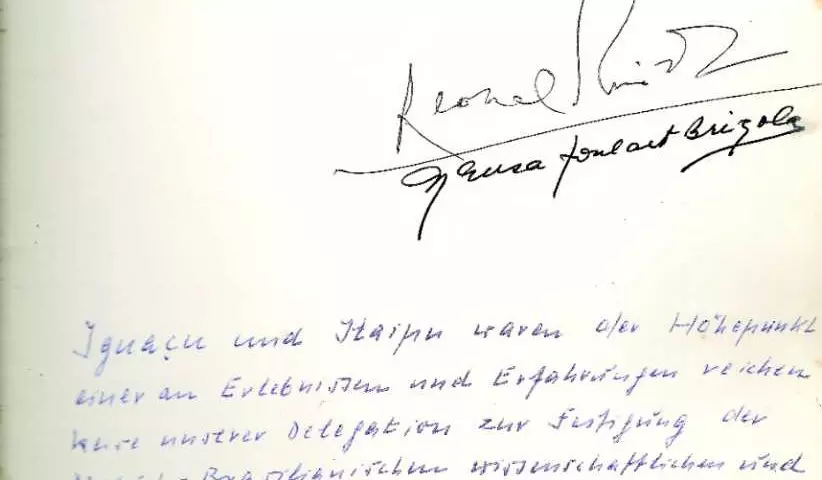 Leonel Brizola
Neusa Goulart Brizola
Iguaçu und Itaipu waren der Höhepunkt
einer an Erlebnissen und Erfahrungen reichen
unserer Delegation zur Festigung der
Brasilianischen wissenschaftlichen und